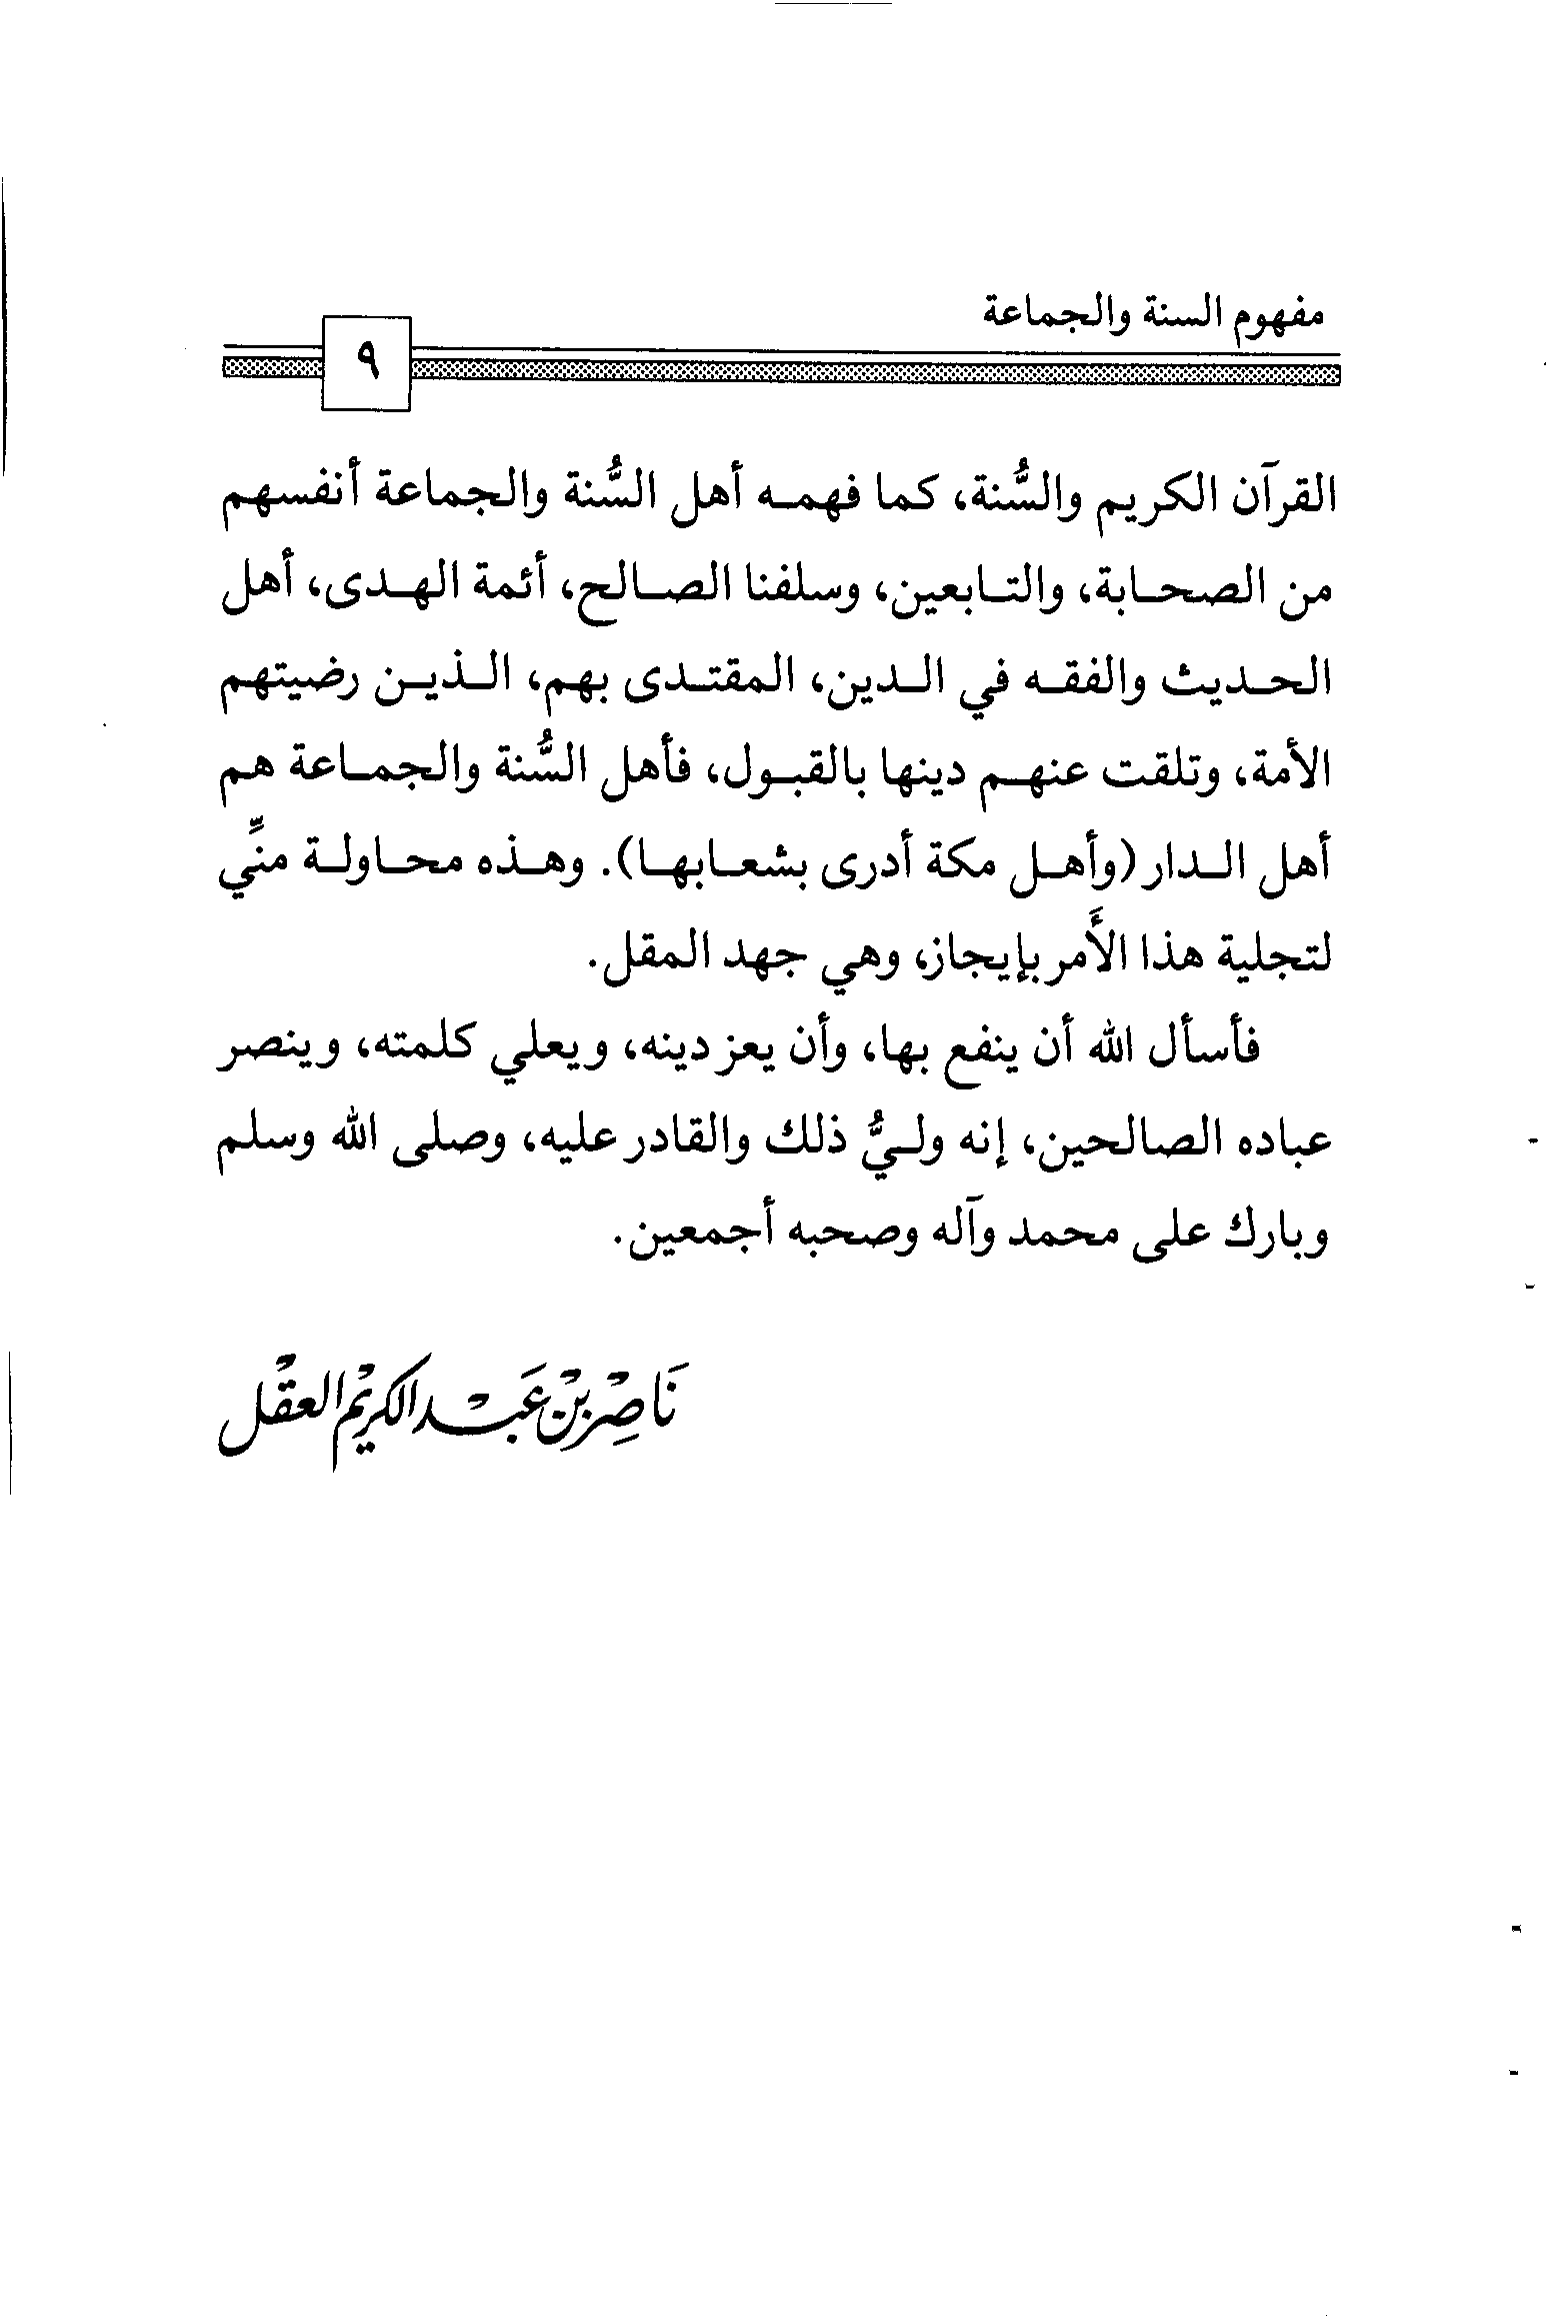 مفهوم السنة والجماعة
٩
القرآن الكريم والسُّنة، كما فهمه أهل السُّنة والجماعة أنفسهم
من الصحابة، والتابعين، وسلفنا الصالح، أئمة الهدى، أهل
الحديث والفقه في الدين، المقتدى بهم، الذين رضيتهم
الأمة، وتلقت عنهم دينها بالقبول، فأهل السُّنة والجماعة هم
أهل الدار (وأهل مكة أدرى بشعابها). وهذه محاولة منِّي
لتجلية هذا الأَمر بإيجاز، وهي جهد المقل.
فأسأل الله أن ينفع بها، وأن يعز دينه، ويعلي كلمته، وينصر
عباده الصالحين، إنه وليُّ ذلك والقادر عليه، وصلى الله وسلم
وبارك على محمد وآله وصحبه أجمعين.
نَاصِرْ بْن عَبْد الكريْم العقْل